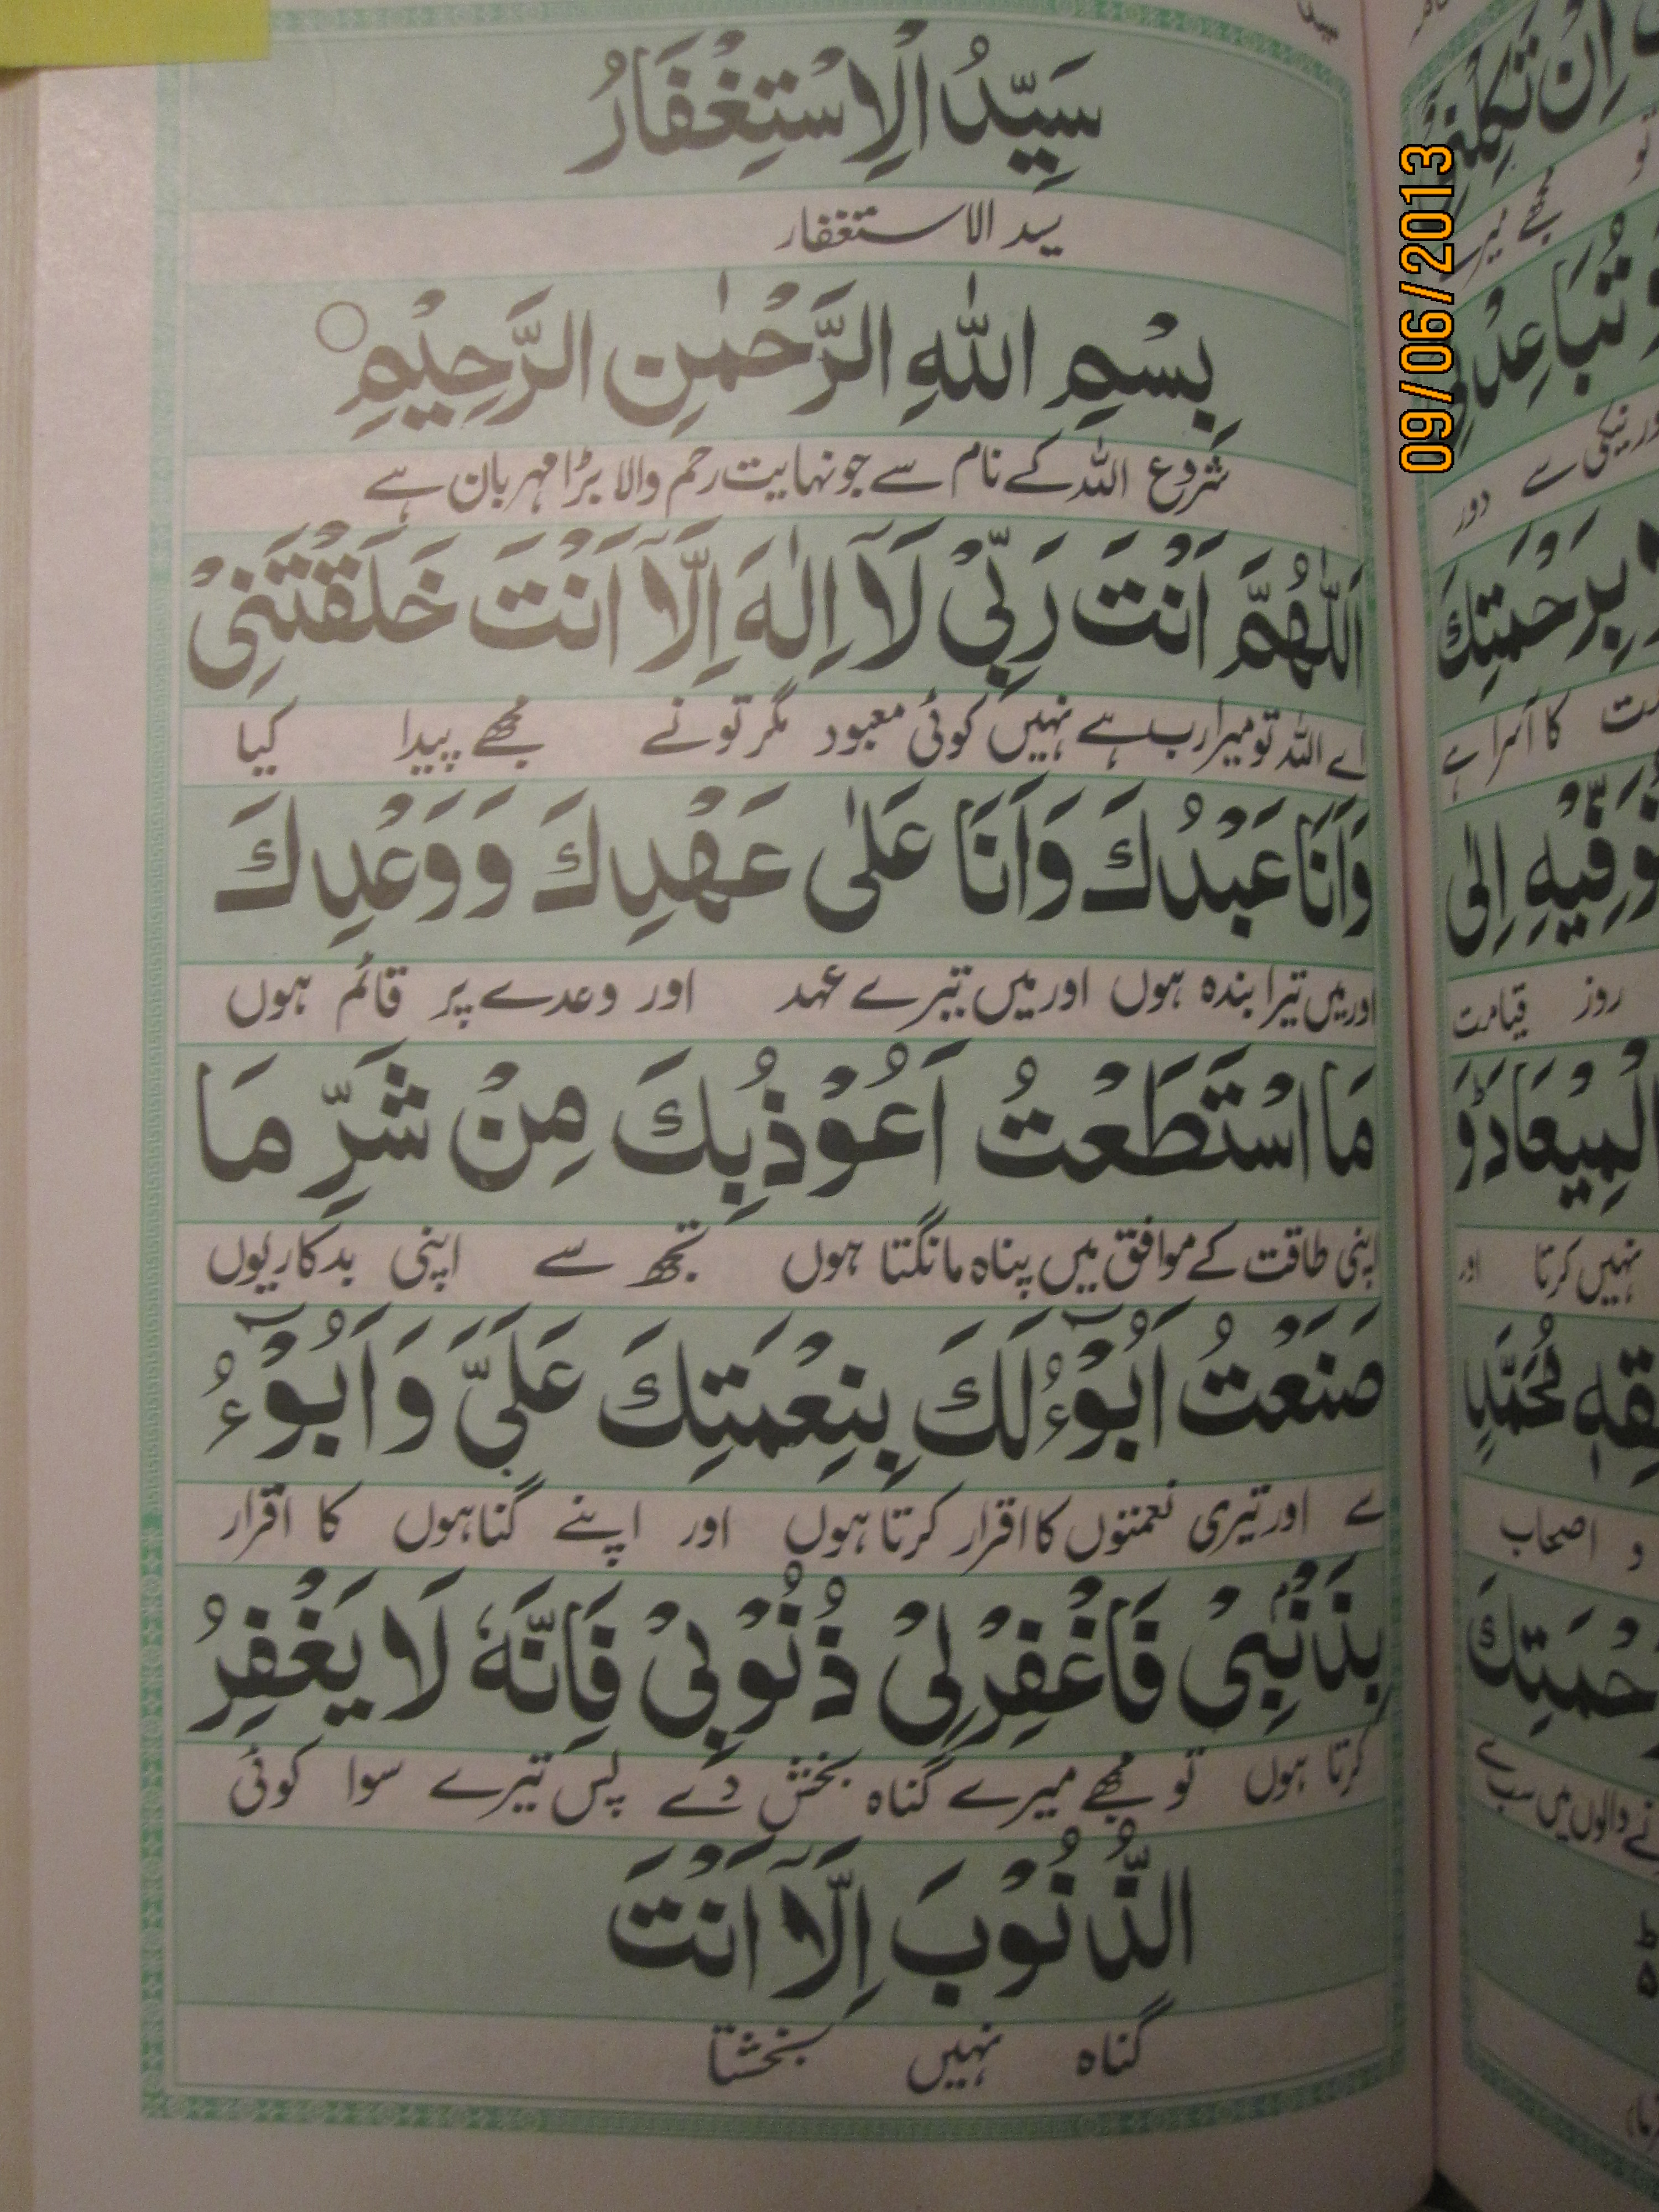 سَيِّدُ الْاِسْتِغْفَارُ
سید الاستغفار
بِسْمِ اللّٰهِ الرَّحْمٰنِ الرَّحِيْمِ
شروع اللہ کے نام سے جو نہایت رحم والا بڑا مہربان ہے
اَللّٰهُمَّ اَنْتَ رَبِّيْ لَآ اِلٰهَ اِلَّآ اَنْتَ خَلَقْتَنِيْ
اے اللہ تو میرا رب ہے نہیں کوئی معبود مگر تو نے مجھے پیدا کیا
وَاَنَا عَبْدُكَ وَاَنَا عَلٰى عَهْدِكَ وَوَعْدِكَ
اور میں تیرا بندہ ہوں اور میں تیرے عہد اور وعدے پر قائم ہوں
مَا اسْتَطَعْتُ اَعُوْذُبِكَ مِنْ شَرِّ مَا
اپنی طاقت کے موافق میں پناہ مانگتا ہوں تجھ سے اپنی بدکاریوں
صَنَعْتُ اَبُوْٓءُ لَكَ بِنِعْمَتِكَ عَلَيَّ وَاَبُوْٓءُ
سے اور تیری نعمتوں کا اقرار کرتا ہوں اور اپنے گناہوں کا اقرار
بِذَنْۢبِيْ فَاغْفِرْلِيْ ذُنُوْبِيْ فَاِنَّهٗ لَا يَغْفِرُ
کرتا ہوں تو مجھے میرے گناہ بخش دے پس تیرے سوا کوئی
الذُّنُوْبَ اِلَّآ اَنْتَ
گناہ نہیں بخشتا
09/06/2013
اِنْ تَكِلْنِيْ
تو مجھے میرے
تُبَاعِدْنِيْ
اور نیکی سے دور
بِرَحْمَتِكَ
کا آسرا ہے
فِيْهِ اِلٰى
روز قیامت
الْمِيْعَادَ وَ
نہیں کرتا اور
مُحَمَّدٍ
و اصحاب